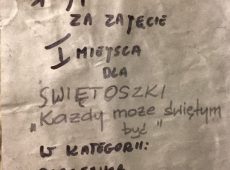 ZA ZAJĘCIE
I MIEJSCA
DLA
ŚWIĘTOSZKI
„Każdy może świętym
być"
W KATEGORII: